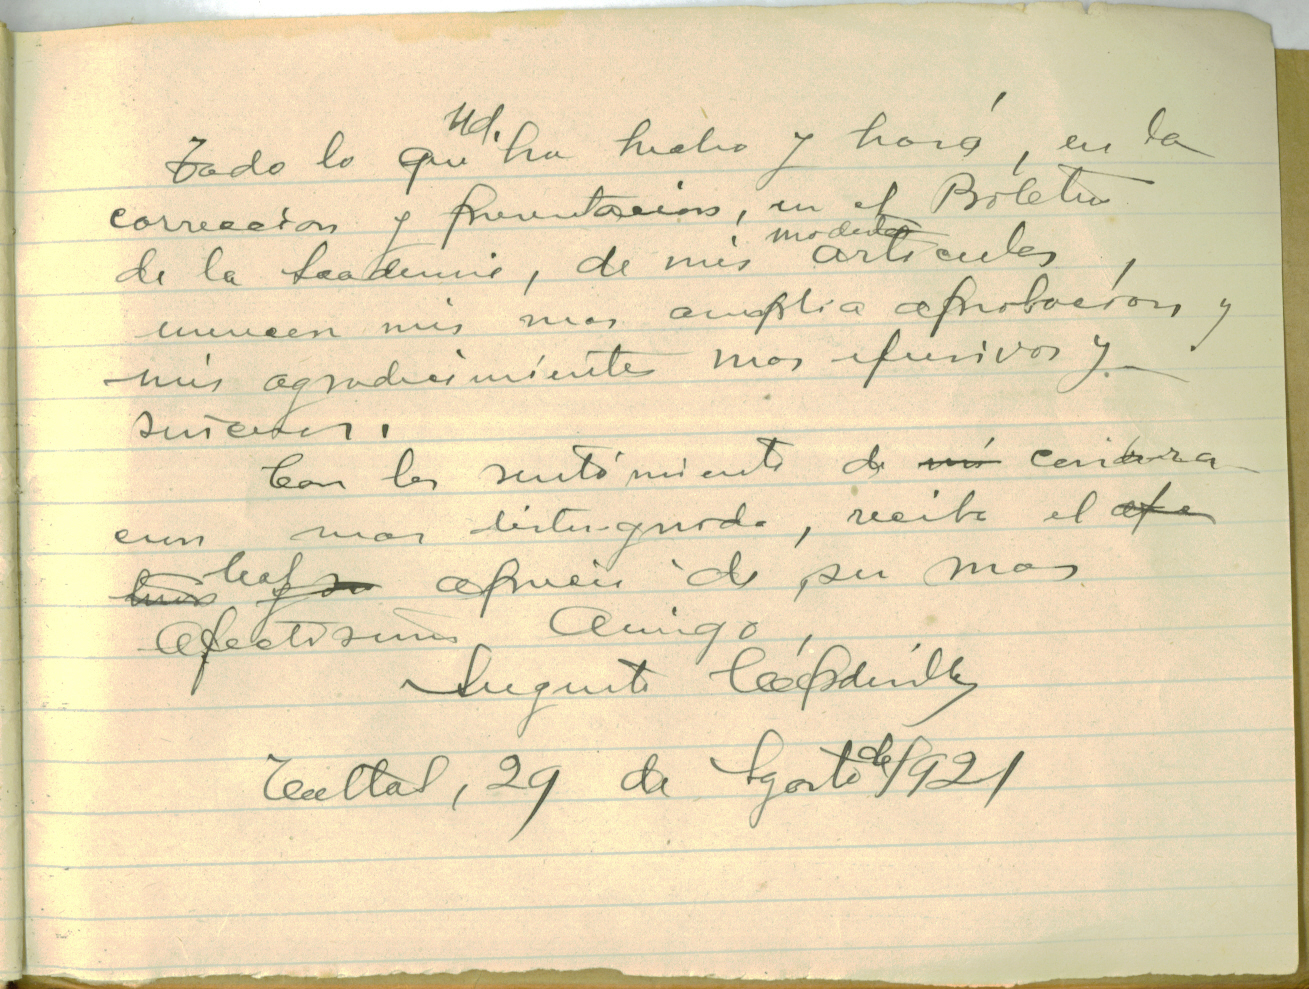 Todo lo que Ud. ha hecho y hará, en la
correccion y presentacion, en el Boletin
de la Academia, de mis modestos articulos,
merecen mis mas amplia aprobacion y
mis agradecimientos mas efusivos y
sinceros.
Con los sentimientos de mi considera
cion mas distinguida, reciba el afe
leal aprecio de su mas
afectisimo Amigo,
Augusto Capdeville
Taltal, 29 de Agosto de 1921